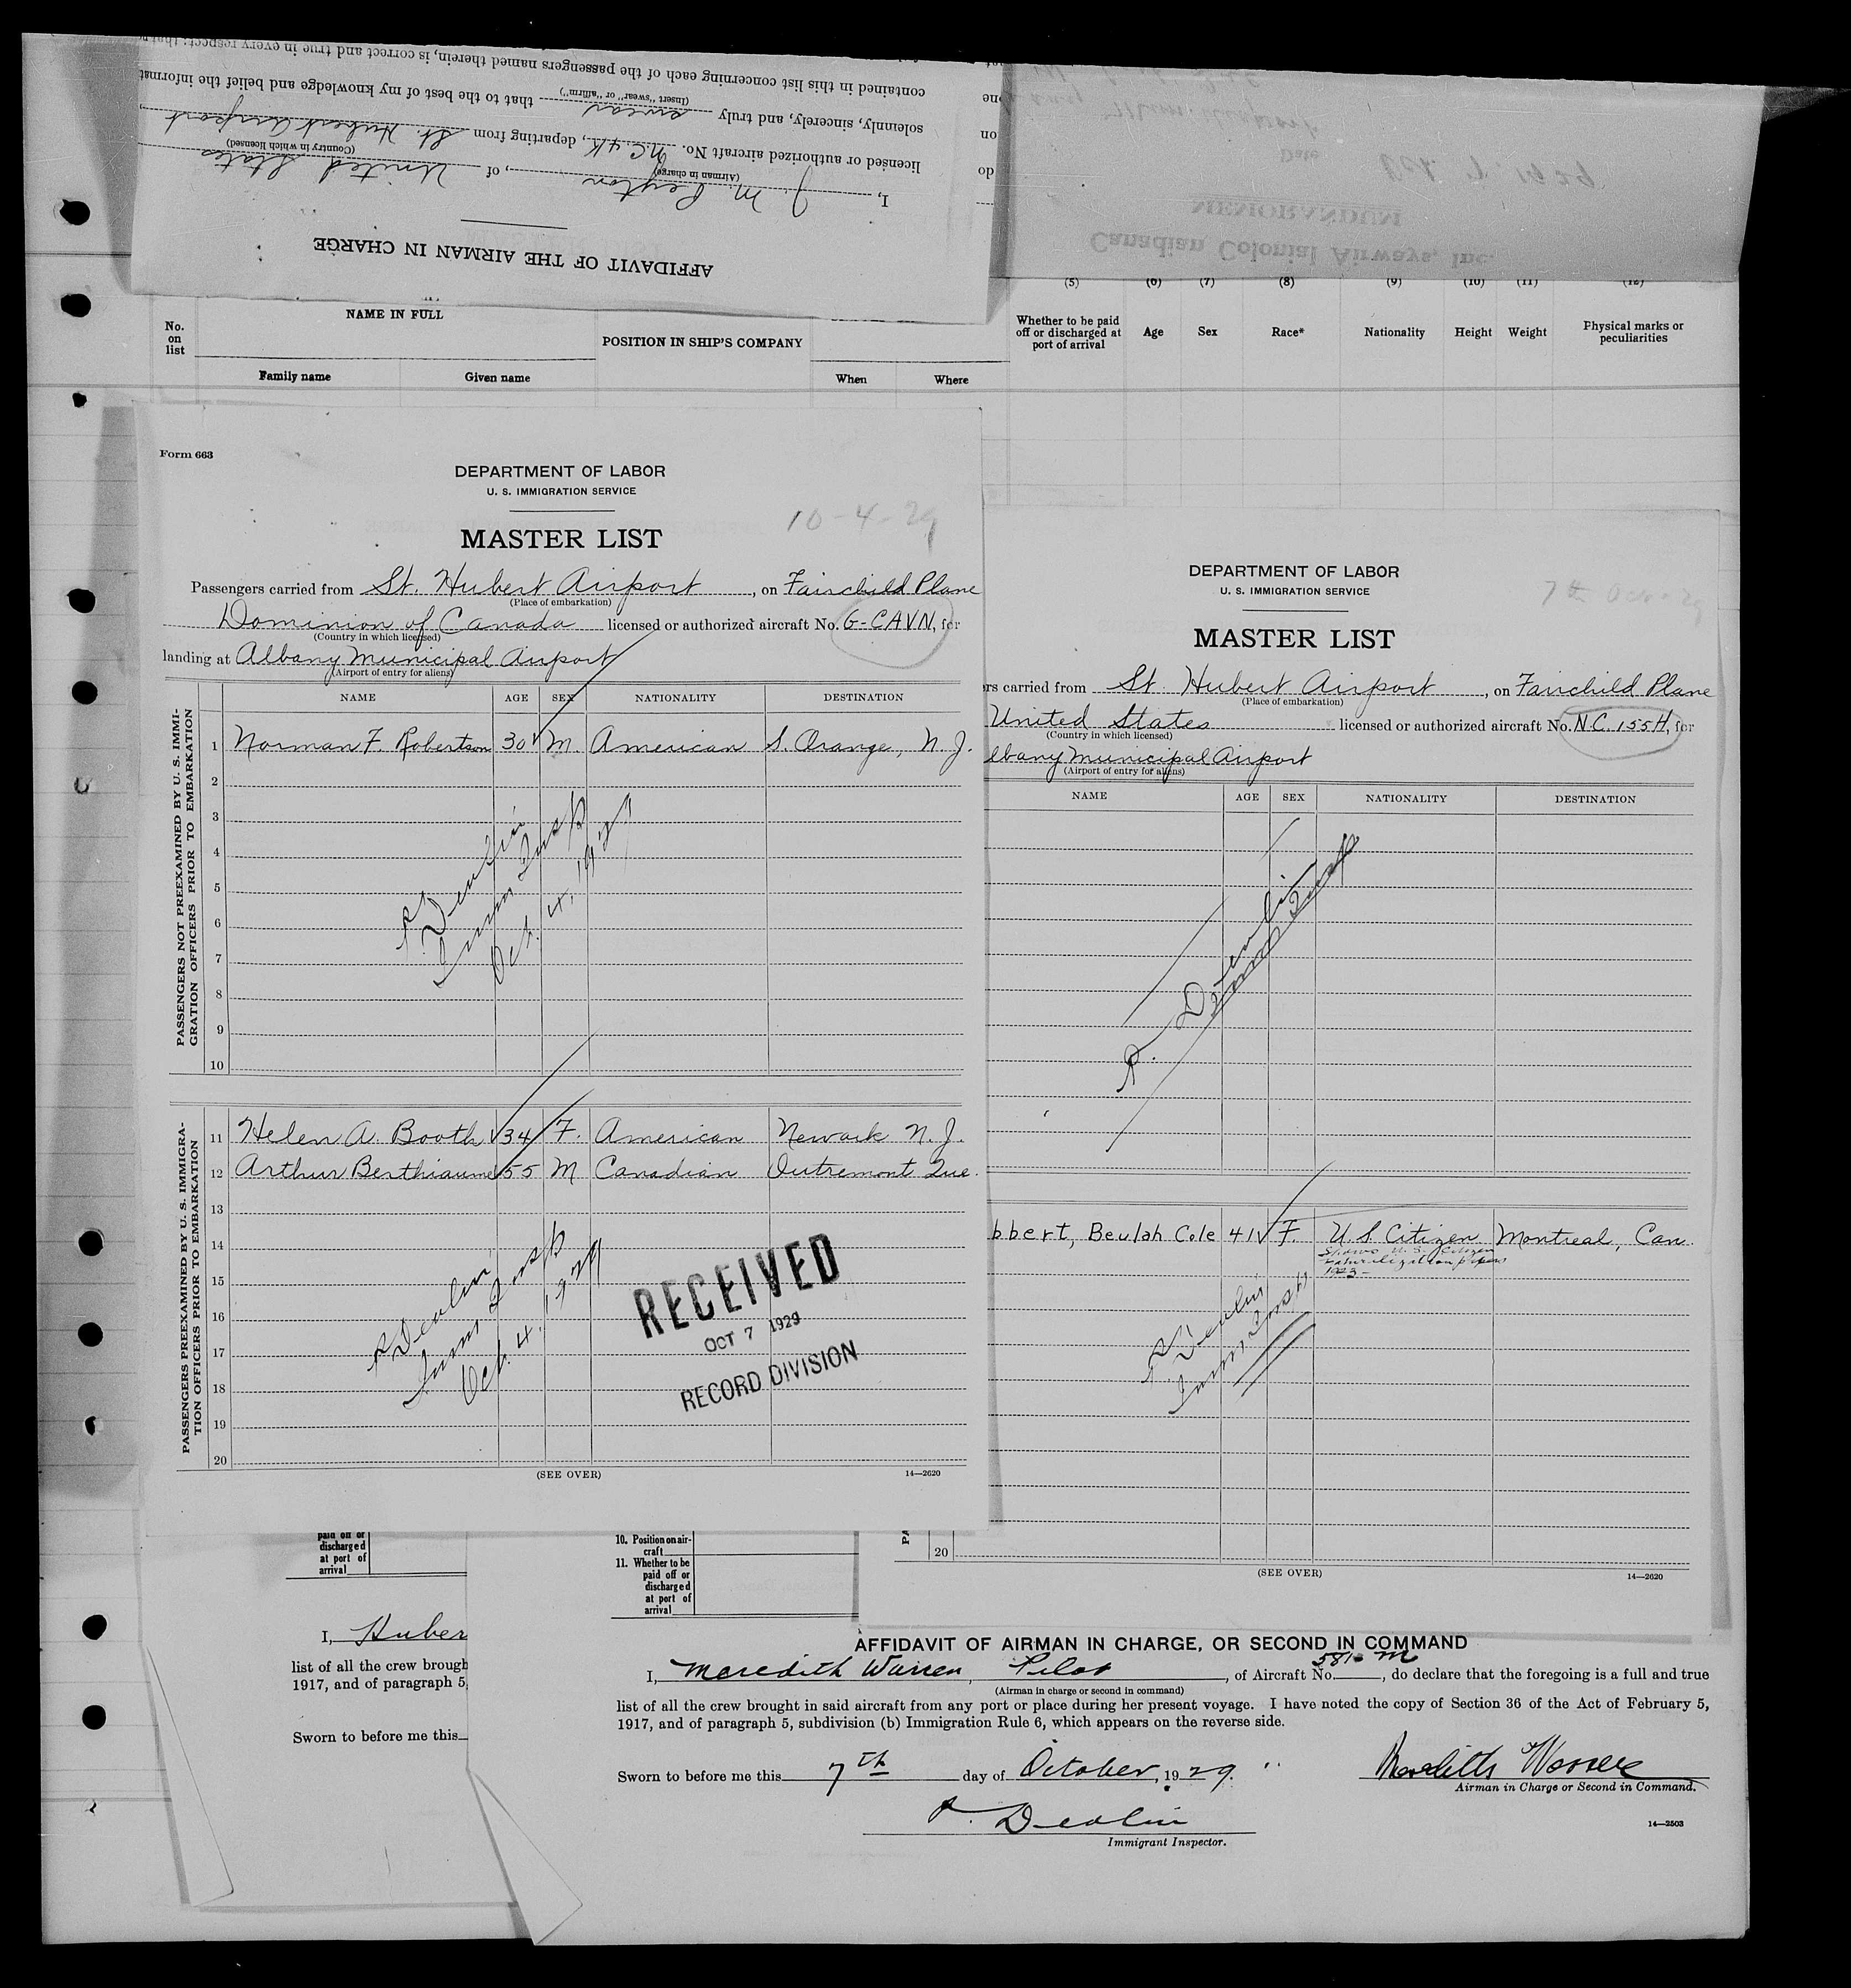 contained in this list concerning each of the passengers named therein, is correct and true in every respect; that
solemnly, sincerely, and truly swear that to the best of my knowledge and belief the informat
(Insert "swear" or "affirm")
licensed or authorized aircraft No. N.C. 4K, departing from St. Hubert Airport
(Country in which licensed)
I, J. M. Peyton, of United States
(Airman in charge)
AFFIDAVIT OF THE AIRMAN IN CHARGE
Date Oct. 7 1929
MEMORANDUM
Canadian Colonial Airways, Inc.
(5) (6) (7) (8) (9) (10) (11) (12)
No. on list
NAME IN FULL
Family name Given name
POSITION IN SHIP'S COMPANY
When Where
Whether to be paid off or discharged at port of arrival
Age Sex Race* Nationality Height Weight Physical marks or peculiarities
Form 663
DEPARTMENT OF LABOR
U. S. IMMIGRATION SERVICE
10-4-29
MASTER LIST
Passengers carried from St. Hubert Airport, on Fairchild Plane
(Place of embarkation)
Dominion of Canada licensed or authorized aircraft No. G-CAVN, for
(Country in which licensed)
landing at Albany Municipal Airport
(Airport of entry for aliens)
NAME AGE SEX NATIONALITY DESTINATION
PASSENGERS NOT PREEXAMINED BY U. S. IMMI-
GRATION OFFICERS PRIOR TO EMBARKATION
1 Norman F. Robertson 30 M. American S. Orange, N. J.
2
3
4
5
6
7
8
9
10
P. Devlin
Imm Insp
Oct. 4, 1929
PASSENGERS PREEXAMINED BY U. S. IMMIGRA-
TION OFFICERS PRIOR TO EMBARKATION
11 Helen A. Booth 34 F. American Newark N. J.
12 Arthur Berthiaume 55 M Canadian Outremont Que.
13
14
15
16
17
18
19
20
P Devlin
Imm Insp
Oct. 4. 1929
RECEIVED
OCT 7 1929
RECORD DIVISION
(SEE OVER)
14—2620
DEPARTMENT OF LABOR
U. S. IMMIGRATION SERVICE
7th Oct-29
MASTER LIST
rs carried from St. Hubert Airport, on Fairchild Plane
(Place of embarkation)
United States licensed or authorized aircraft No. N.C. 155H, for
(Country in which licensed)
lbany Municipal Airport
(Airport of entry for aliens)
NAME AGE SEX NATIONALITY DESTINATION
P. Devlin
Imm Insp
bbert, Beulah Cole 41 F. U. S. Citizen Montreal, Can.
Shows U. S. Citizen
naturalization papers
1923-
P Devlin
Imm Insp
20
(SEE OVER)
14—2620
paid off or
discharged
at port of
arrival
10. Position on air-
craft
11. Whether to be
paid off or
discharged
at port of
arrival
I, Huber
list of all the crew brough
1917, and of paragraph 5,
Sworn to before me this
AFFIDAVIT OF AIRMAN IN CHARGE, OR SECOND IN COMMAND
I, Meredith Warren, Pilot, of Aircraft No. 581-M, do declare that the foregoing is a full and true
(Airman in charge or second in command)
list of all the crew brought in said aircraft from any port or place during her present voyage. I have noted the copy of Section 36 of the Act of February 5,
1917, and of paragraph 5, subdivision (b) Immigration Rule 6, which appears on the reverse side.
Sworn to before me this 7th day of October, 1929.
Meredith Warren
Airman in Charge or Second in Command.
P. Devlin
Immigrant Inspector.
14—2503